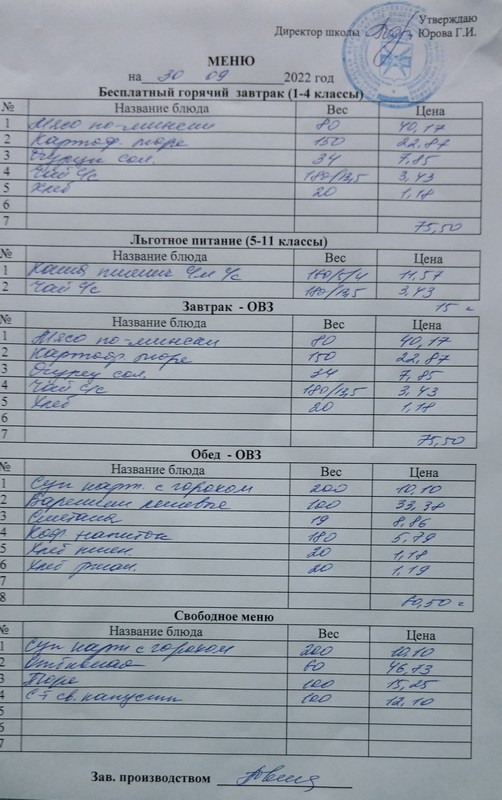 Утверждаю
Директор школы Юрова Г.И.
МЕНЮ
на 30 09 2022 год
Бесплатный горячий завтрак (1-4 классы)
№ Название блюда Вес Цена
1 Мясо по-мински 80 40,17
2 Картоф. пюре 150 22,87
3 Огурец сол. 34 7,85
4 Чай с/с 180/13,5 3,43
5 Хлеб 20 1,18
6
7 75,50
Льготное питание (5-11 классы)
№ Название блюда Вес Цена
1 Каша пшенич 160/5/4 11,57
2 Чай с/с 180/13,5 3,43
15
Завтрак - ОВЗ
№ Название блюда Вес Цена
1 Мясо по-мински 80 40,17
2 Картоф. пюре 150 22,87
3 Огурец сол. 34 7,85
4 Чай с/с 180/13,5 3,43
5 Хлеб 20 1,18
6
7 75,50
Обед - ОВЗ
№ Название блюда Вес Цена
1 Суп карт. с горохом 200 10,10
2 Вареники 100 33,38
3 Сметана 19 8,86
4 Коф. напиток 180 5,79
5 Хлеб пшен. 20 1,18
6 Хлеб ржан. 20 1,19
7
8 60,50
Свободное меню
№ Название блюда Вес Цена
1 Суп карт с горохом 200 10,10
2 Отбивная 60 46,73
3 Пюре 100 15,25
4 С-т св. капусты 100 12,10
5
6
7
Зав. производством